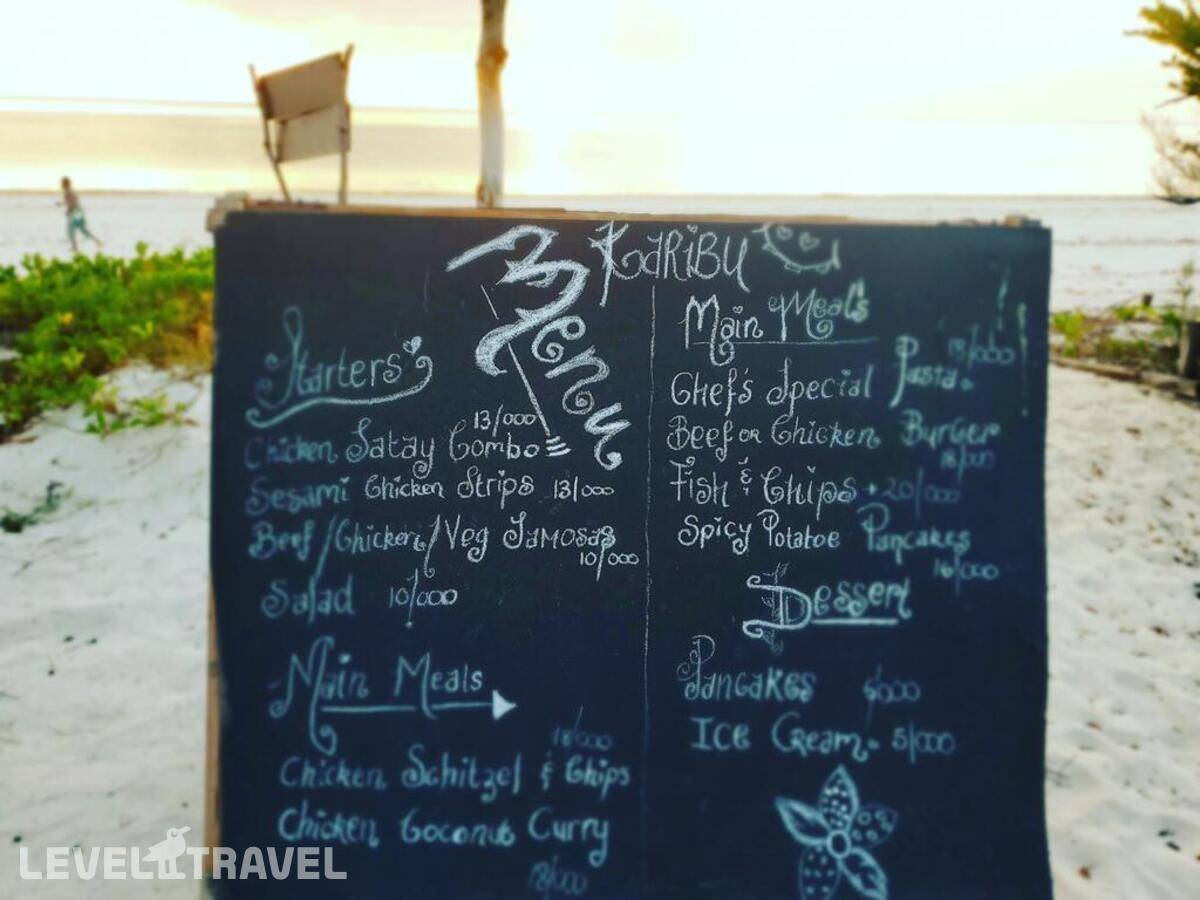 Karibu
Menu
Starters
13/000
Chicken Satay Combo
Sesami Chicken Strips 13/000
Beef/Chicken/Veg Samosas
10/000
Salad 10/000
Main Meals
18/000
Chicken Schitzel & Chips
Chicken Coconut Curry
18/000
Main Meal's
Chef's Special Pasta
Beef or Chicken Burger
18/000
Fish & Chips 20/000
Spicy Potatoe Pancakes
16/000
Dessert
Pancakes
Ice Cream 5/000
LEVEL TRAVEL